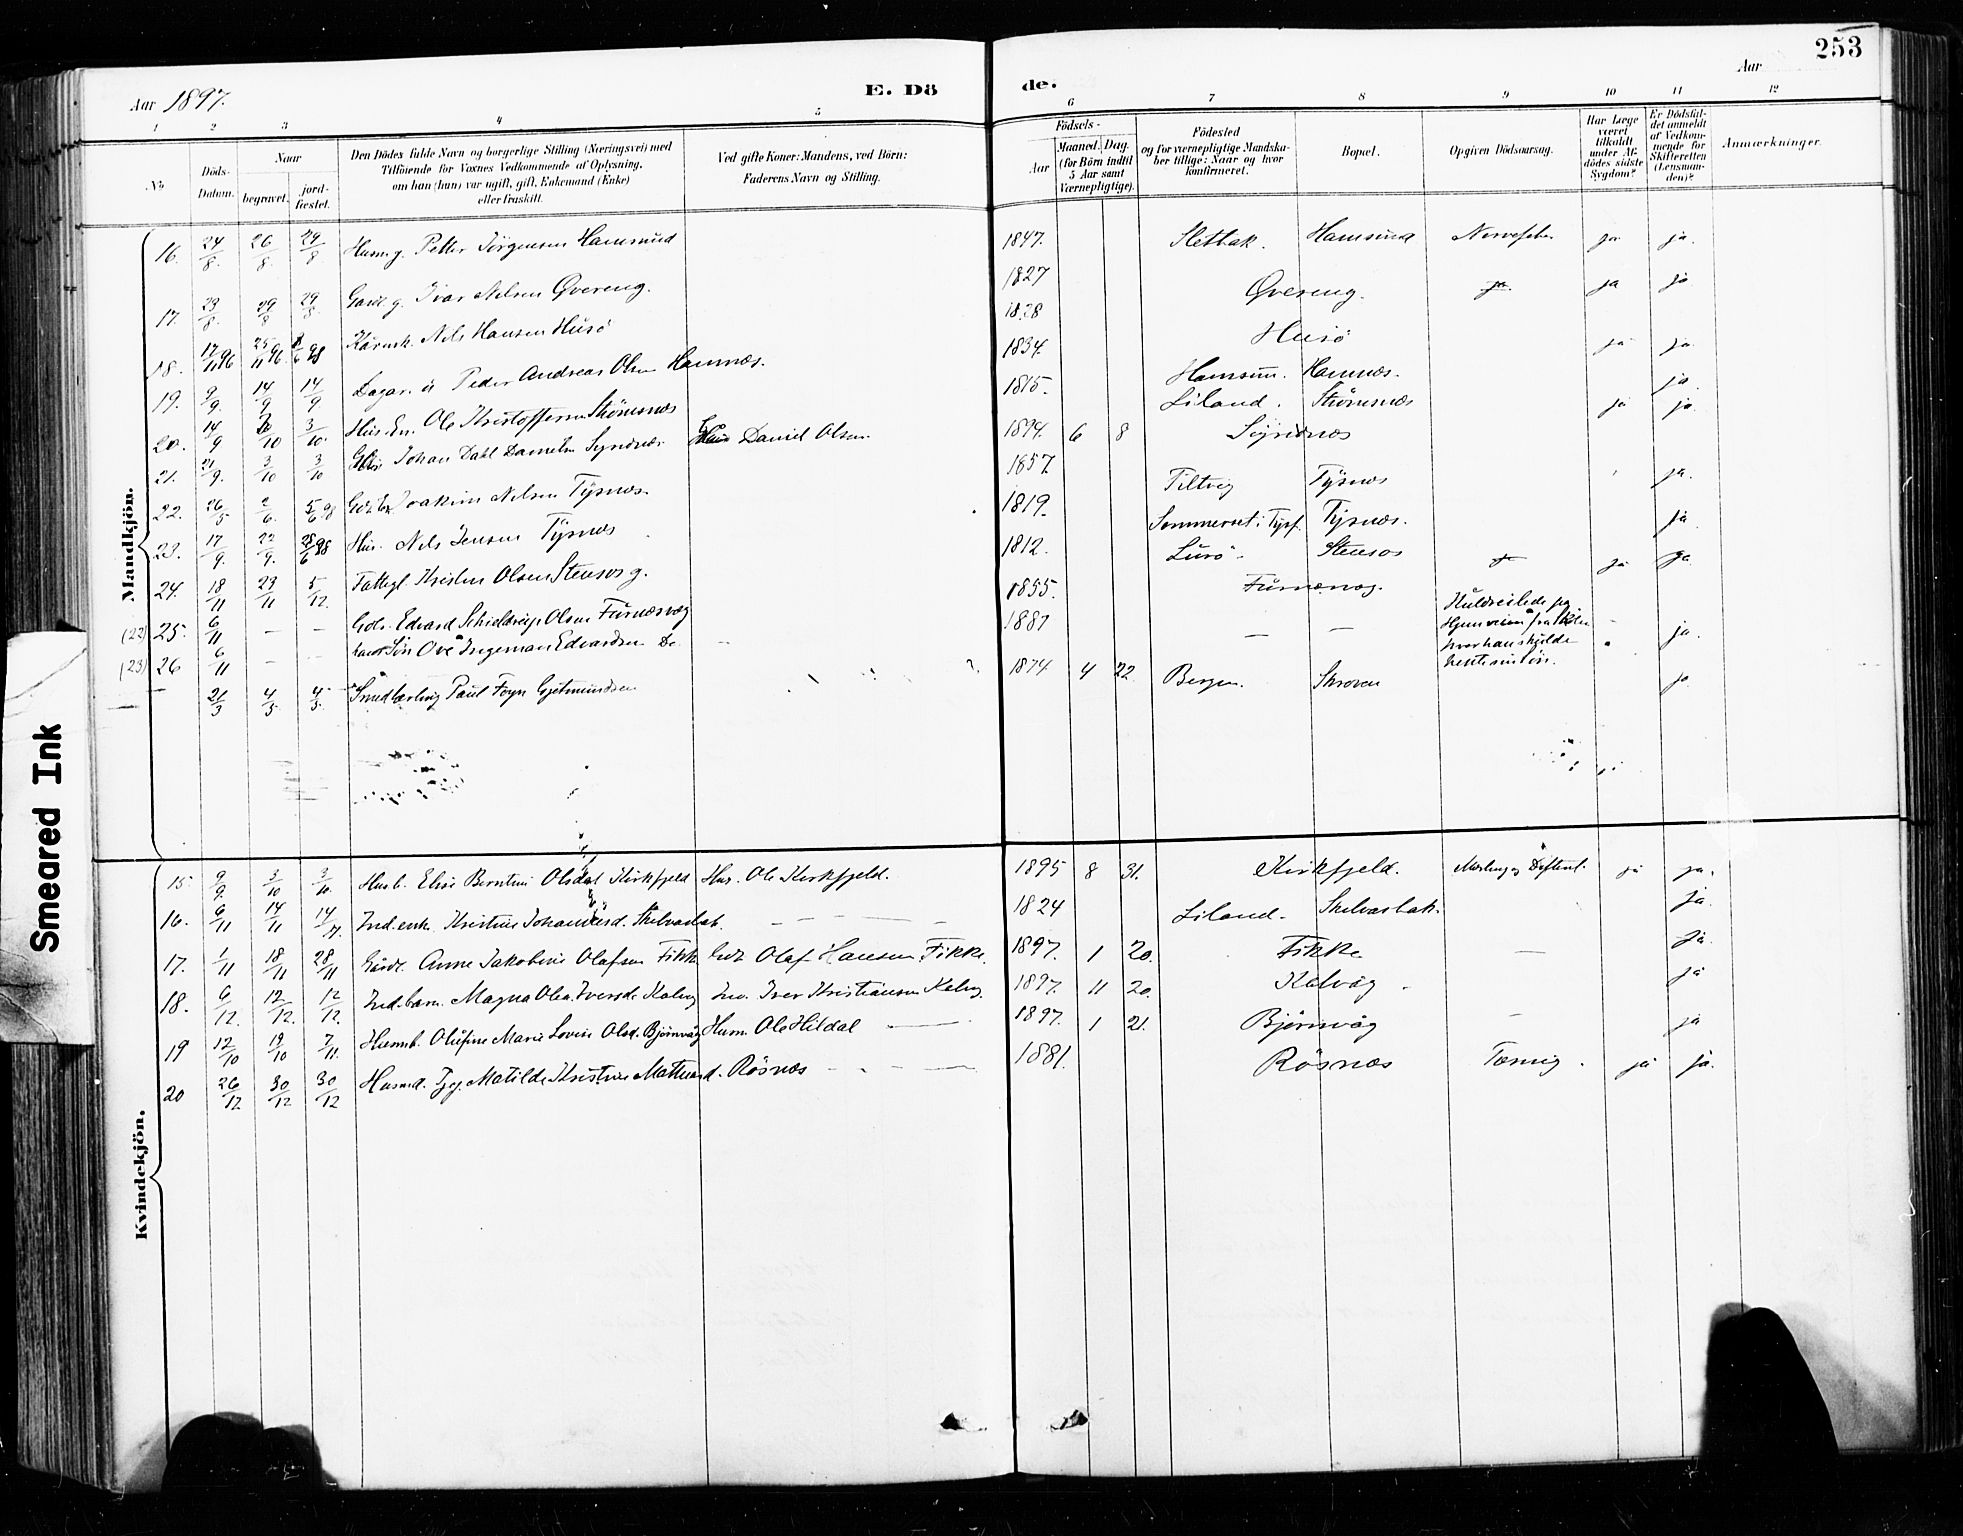 253
Aar 1897.
E. Dö de.
Aar
1 2 3 4 5 6 7 8 9 10 11 12
No
Döds-Datum.
Naar
begravet.
jord-fæstet.
Den Dödes fulde Navn og borgerlige Stilling (Næringsvei) med
Tilföiende for Voxnes Vedkommende af Oplysning,
om han (hun) var ugift, gift, Enkemand (Enke)
eller fraskilt.
Ved gifte Koner: Mandens, ved Börn:
Faderens Navn og Stilling.
Födsels-
Aar
Maaned. Dag.
(for Börn indtil
5 Aar samt
Værnepligtige).
Födested
og for værnepligtige Mandska-
ber tillige: Naar og hvor
konfirmeret.
Bopæl.
Opgiven Dödsaarsag.
Har Læge
været
tilkaldt
under Af-
dödes sidste
Sygdom?
Er Dödsfal-
det anmeldt
af Vedkom-
mende for
Skifteretten
(Lensman-
den)?
Anmærkninger.
Mandkjön.
16. 24/8. 26/8. 29/8 Husm. g. Petter Jörgensen Hamsund 1847. Slettbak. Hamsund Nervefeber ja ja.
17. 23/8. 29/8 29/8. Gaard g. Ivar Nilsen Qvereng. 1827 Qvereng. ja ja
18. 17/11 96 25/11 96. 98 Nils Hansen Husö 1828 Husö ja ja
19. 9/9. 14/9 14/9 Peder Andreas Olsen Hamnæs. 1834. Hamsun. Hamnæs. ja.
20. 14/9 3/10 3/10. Hus. En. Ole Kristoffersen Strömsnæs 1815. Liland. Strömsnæs ja ja.
21. 21/9. 3/10 3/10 Johan Dahl Danielsen Syndnæs Daniel Olsen. 1894. 6 8 Syndnæs
22. 26/5 2/6. 5/6 98 Joakim Nilsen Tysnæs. 1857. Tiltvig Tysnæs ja.
23. 17/9. 22/9. 28/6 98 Hus. Nils Jensen Tysnæs 1819. Sommerset i Tysf. Tysnæs. ja
24. 18/11 29/11 5/12. Fattigl. Kristen Olsen Stensos g. 1812. Lurö. Stensos ja ja.
(22) 25. 6/11 — — Edvard Schielderup Olsen Furnæsvaag 1855. Furnæsvaag.
(23) 26 6/11 — — Søn Ove Ingeman Edvardsen Do — 1887 — — ja.
Huldreilede paa
Hjemveien fra Skolen
hvor han skulde
hente sin Sön.
— 21/3 4/5 4/5 Smedlærling Paul Foyn Gjetmundsen 1874 4 22. Bergen. Skroven ja
Kvindekjön.
15. 9/9. 3/10 3/10. Husb. Elise Berntine Olsdat Kirkfjeld Hus. Ole Kirkfjeld. 1895 8 31. Kirkfjeld. Meslinger Difterit. ja ja.
16. 6/11 14/11 14/11. Ind. enk. Kristine Johannesd. Skilvasbak. — — — 1824 Liland. Skilvasbak. ja.
17. 1/11 18/11 28/11 Gaard. Anne Jakobine Olafsen Fikke Olaf Hansen Fikke. 1897. 1 20. Fikke — ja.
18. 6/12. 12/12. 12/12. Ind. barn. Magna Olea Iversd. Kalvag Iver Kristiansen Kalvag. 1897. 11 20. Kalvåg ja
19 12/10 19/10 7/11. Husmb. Olufine Marie Lovise Olsd. Björnvåg Husm. Ole Hildal — 1897. 1 21. Björnvåg — ja
20 26/12 30/12 30/12 Husmd. Pg. Matilde Kristine Mathiasd. Rösnæs — — 1881. Rösnæs Tæring. ja ja.
Smeared Ink